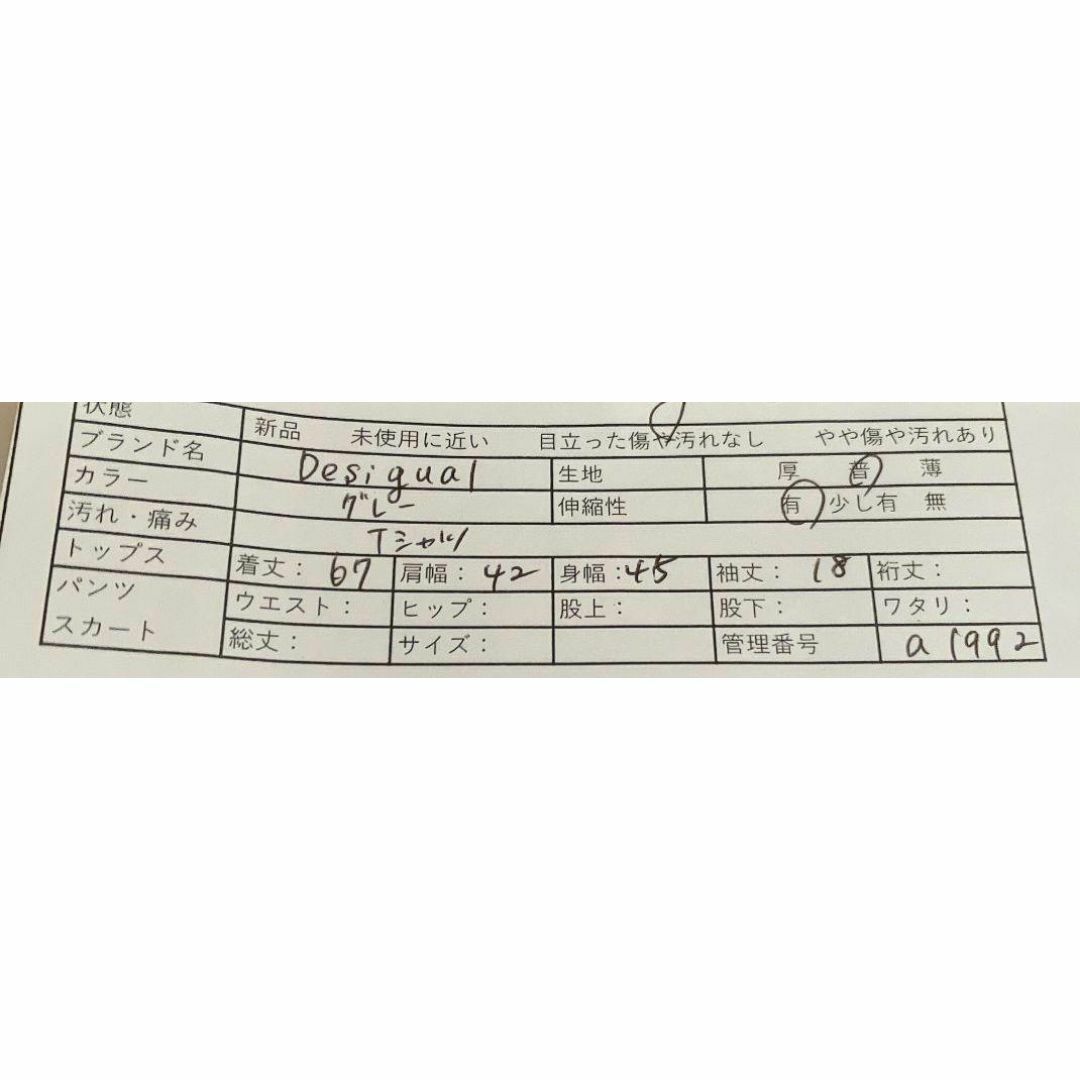 状態 新品 未使用に近い 目立った傷や汚れなし やや傷や汚れあり
ブランド名 Desigual 生地 厚 普 薄
カラー グレー 伸縮性 有 少し有 無
汚れ・痛み Tシャツ
トップス 着丈: 67 肩幅: 42 身幅:45 袖丈: 18 裄丈:
パンツ ウエスト: ヒップ: 股上: 股下: ワタリ:
スカート 総丈: サイズ: 管理番号 a 1992